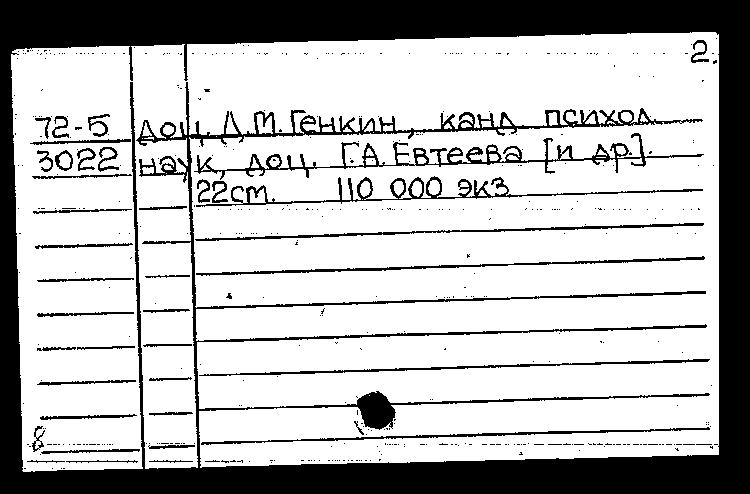 2.
72-5 доц. Д.М. Генкин, канд психол.
3022 наук, доц. Г.А. Евтеева [и др].
22см. 110 000 экз.
8